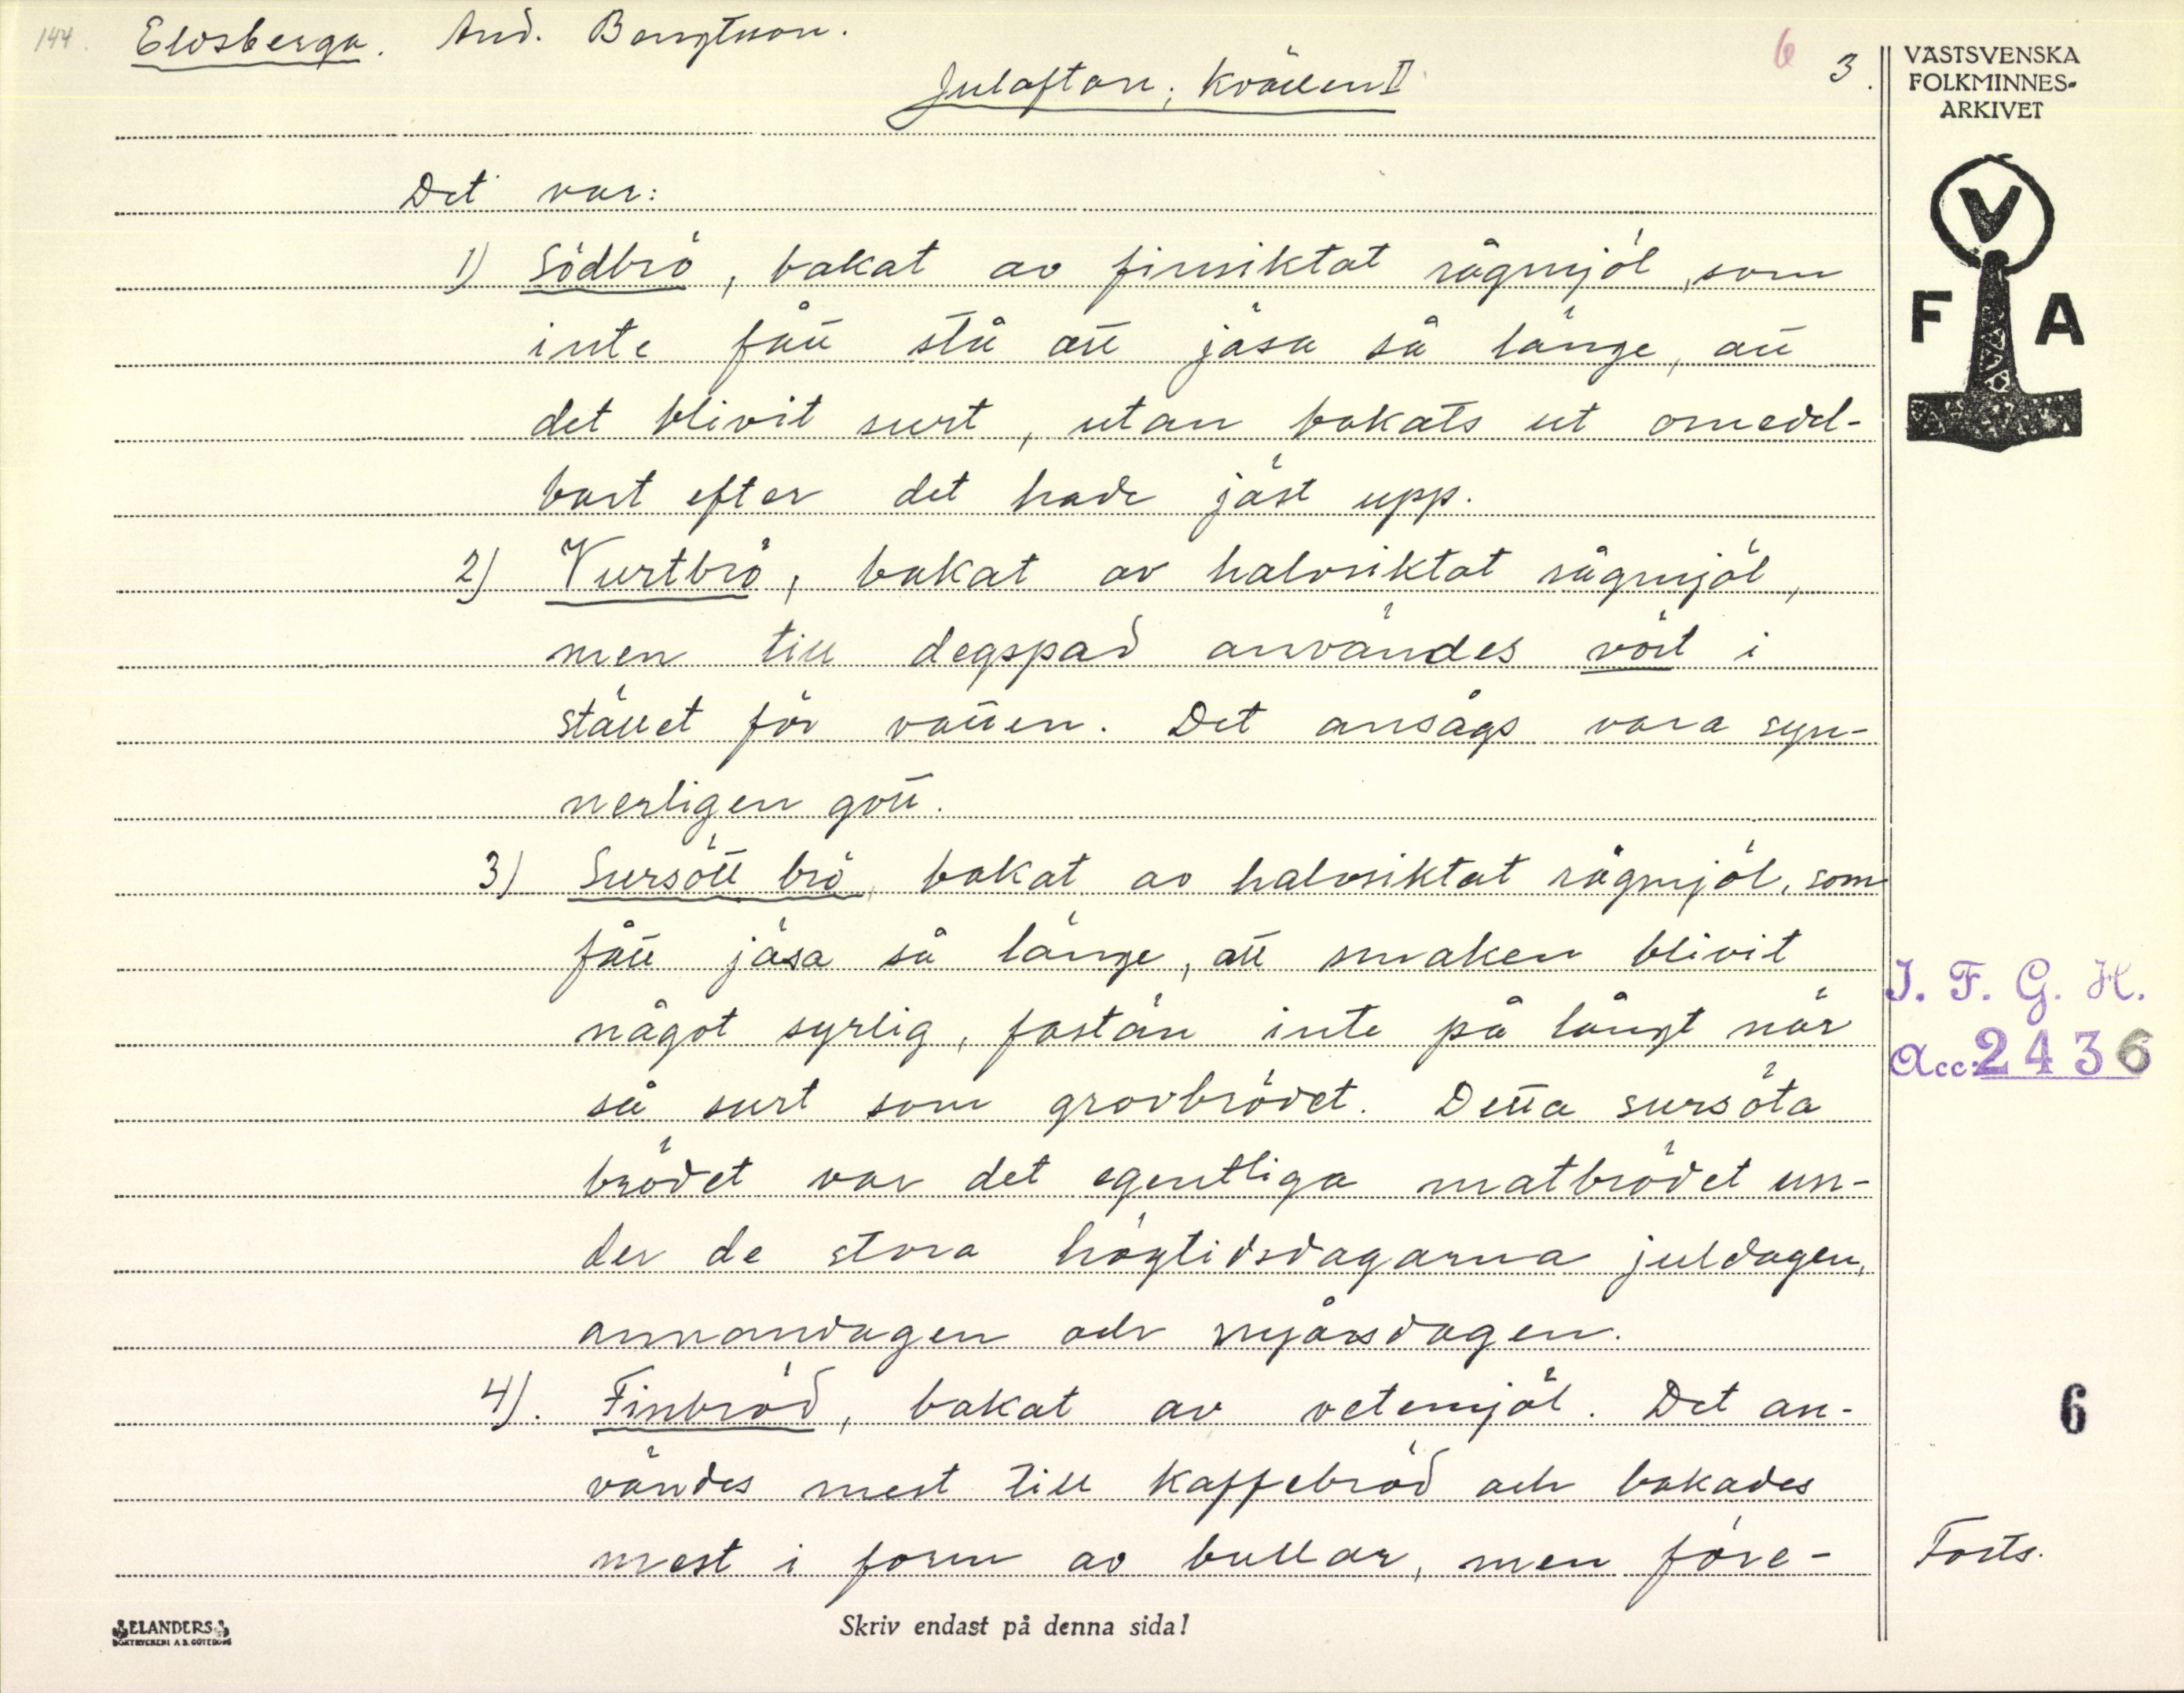 144. Elvsberga. And. Bengtsson.
6 3.
Julafton; kvällen II
Det var:
1) Södbrö, bakat av finsiktat rågmjöl, som
inte fått stå att jäsa så länge, att
det blivit surt, utan bakats ut omedel-
bart efter det hade jäst upp.
2) Vurtbrö, bakat av halvsiktat rågmjöl,
men till degspad användes vört i
stället för vatten. Det ansågs vara syn-
nerligen gott.
3) Sursött brö, bakat av halvsiktat rågmjöl, som
fått jäsa så länge, att smaken blivit
något syrlig, fastän inte på långt när
så surt som grovbrödet. Detta sursöta
brödet var det egentliga matbrödet un-
der de stora högtidsdagarna juldagen,
annandagen och nyårsdagen.
4). Finbröd, bakat av vetemjöl. Det an-
vändes mest till kaffebröd och bakades
mest i form av bullar, men före-
Forts.
VÄSTSVENSKA
FOLKMINNES-
ARKIVET
V
F A
I. F. G. H.
Acc: 2436
6
ELANDERS
BOKTRYCKERI A.B. GÖTEBORG
Skriv endast på denna sida!